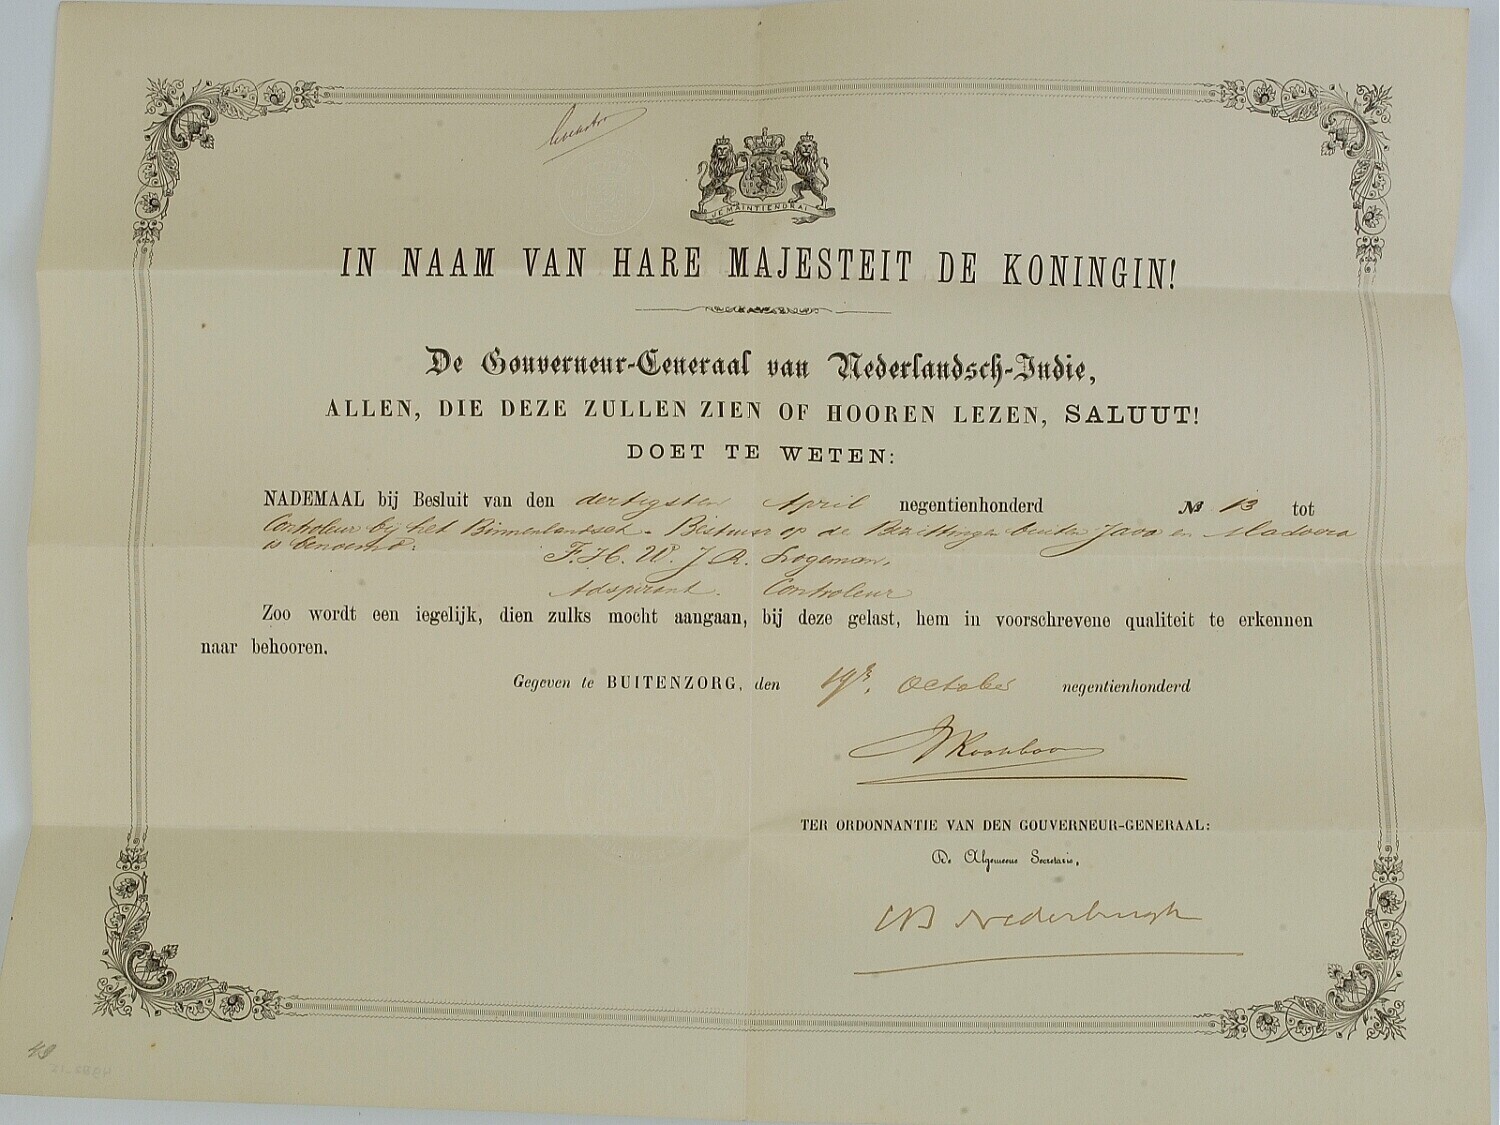 JE MAINTIENDRAI
IN NAAM VAN HARE MAJESTEIT DE KONINGIN!
De Gouverneur-Generaal van Nederlandsch-Indie,
ALLEN, DIE DEZE ZULLEN ZIEN OF HOOREN LEZEN, SALUUT!
DOET TE WETEN:
NADEMAAL bij Besluit van den dertigsten April negentienhonderd No 13 tot
Controleur bij het Binnenlandsch-Bestuur op de Bezittingen buiten Java en Madoera
is benoemd:
F. H. W. J. R. Logeman,
Adspirant-Controleur
Zoo wordt een iegelijk, dien zulks mocht aangaan, bij deze gelast, hem in voorschrevene qualiteit te erkennen
naar behooren.
Gegeven te BUITENZORG, den 19n. October negentienhonderd
Rooseboom
TER ORDONNANTIE VAN DEN GOUVERNEUR-GENERAAL:
De Algemeene Secretaris,
CB Nederburgh
49